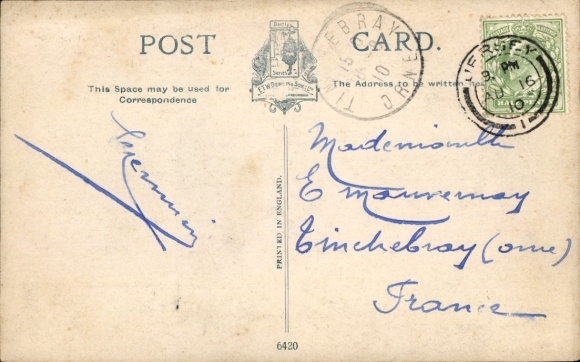 POST CARD.
This Space may be used for
Correspondence
The Address to be written here
Series
PRINTED IN ENGLAND.
6420
JERSEY
9. PM
AU 16
10
1
TINCHEBRAY
ORNE
10
Mademoiselle
E Mauvernay
Tinchebray (orne)
France